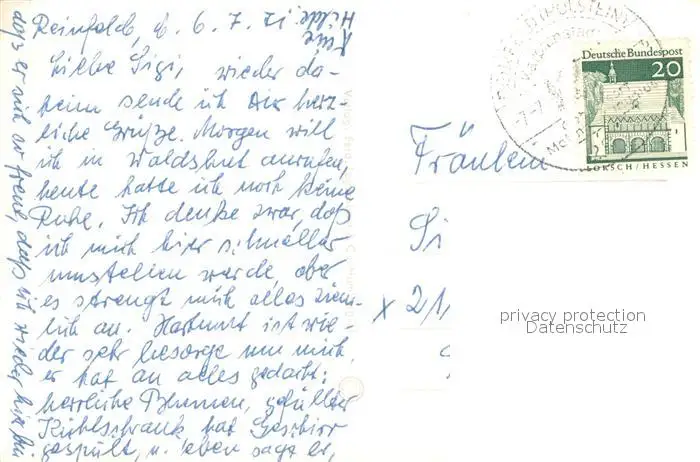 Reinfeld, d. 6. 7. 71
Liebe Sigi, wieder da-
heim sende ich Dir herz-
liche Grüße. Morgen will
ich in Waldshut anrufen,
heute hatte ich noch keine
Ruhe. Ich denke zwar, daß
ich mich hier schneller
umstellen werde, aber
es strengt mich alles ziem-
lich an. Hartmut ist wie-
der sehr besorgt um mich,
er hat an alles gedacht:
herrliche Blumen, gefüllter
Kühlschrank hat Geschirr
gespült, u. eben sagt er,
daß er sich so freue, daß ich wieder hier bin
Hilde
Deutsche Bundespost
20
LORSCH/HESSEN
(HOLSTEIN)
Fräulein
Si
x 21
privacy protection
Datenschutz